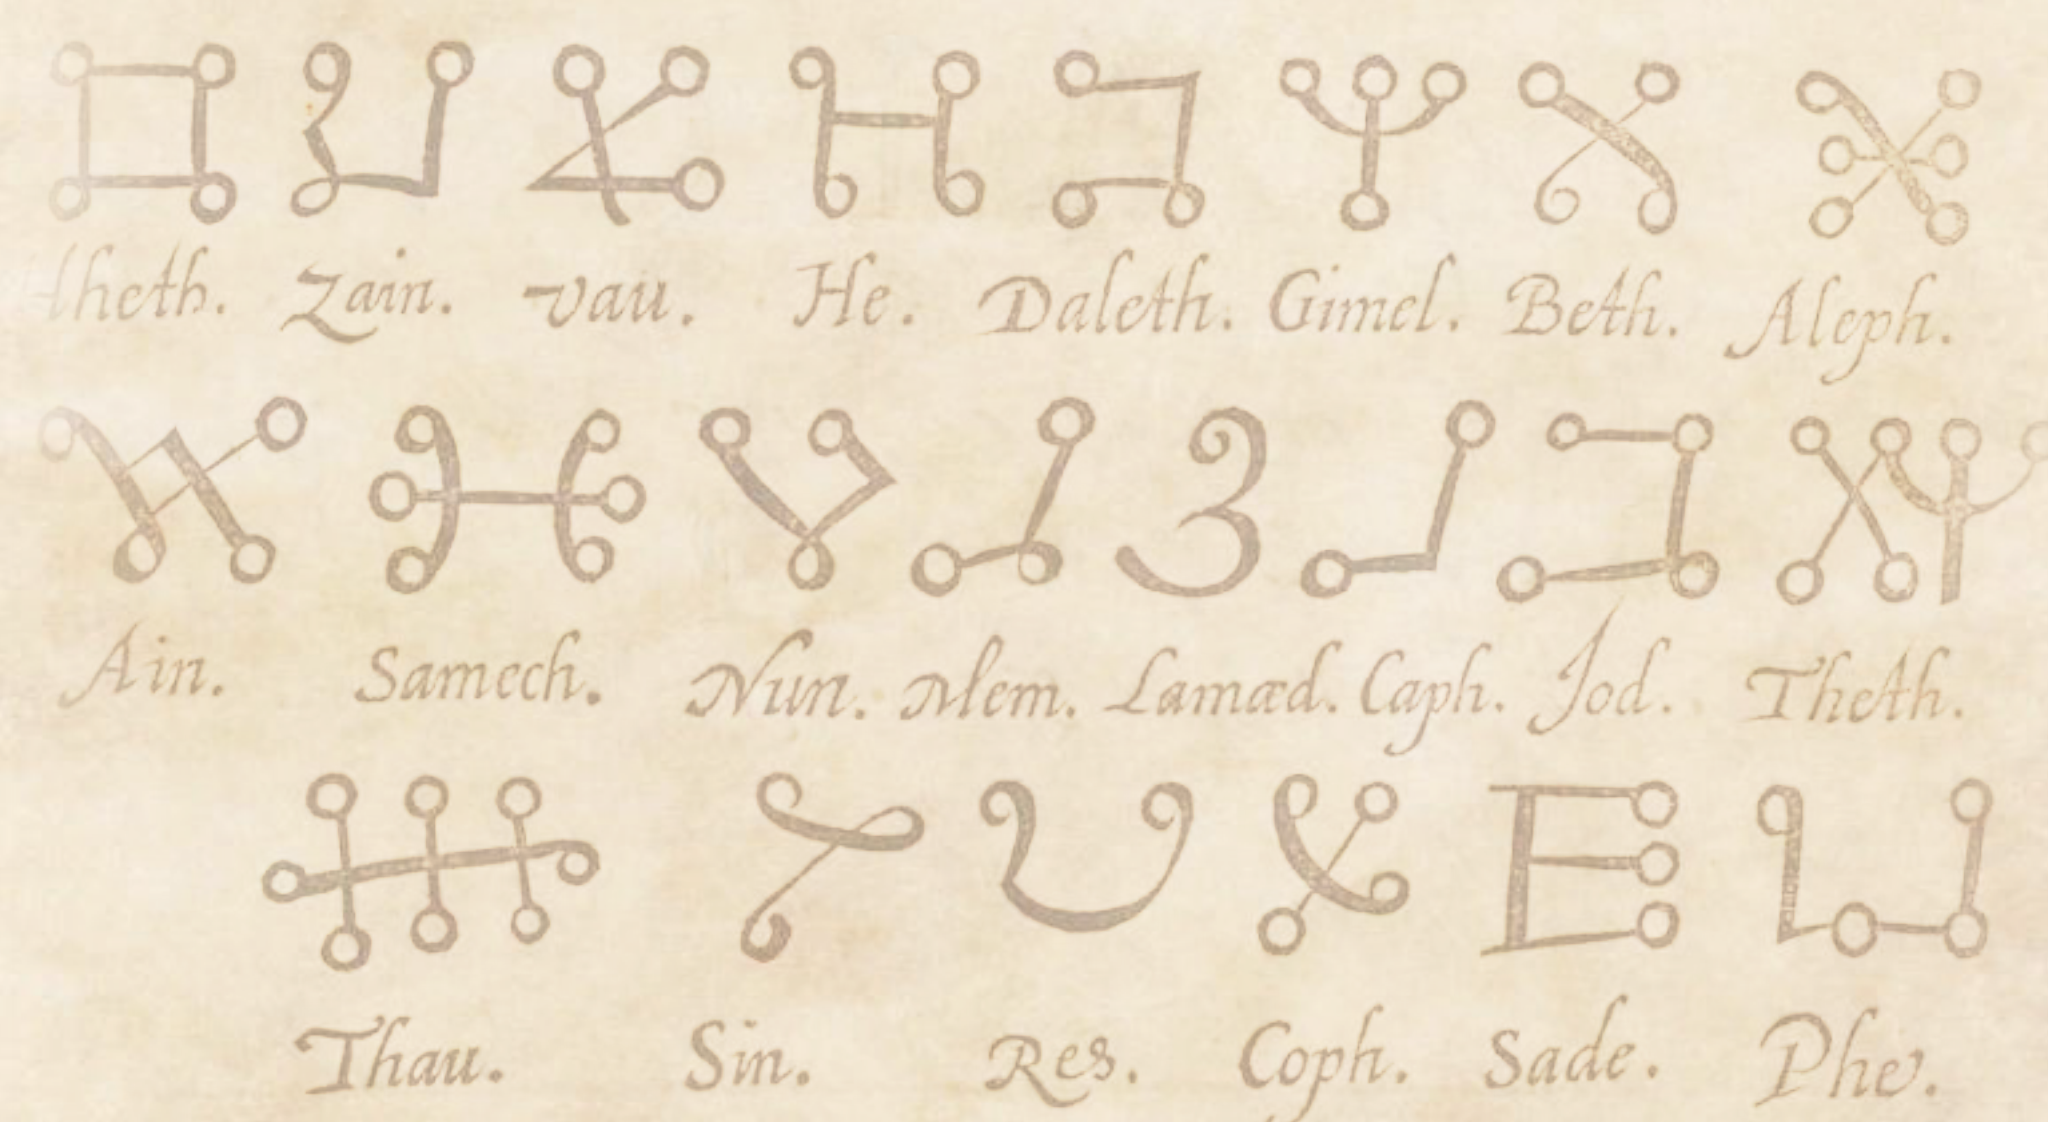 Zain. Vau. He. Daleth. Gimel. Beth. Aleph.
Ain. Samech. Nun. Mem. Lamæd. Caph. Jod. Theth.
Thau. Sin. Res. Coph. Sade. Phe.